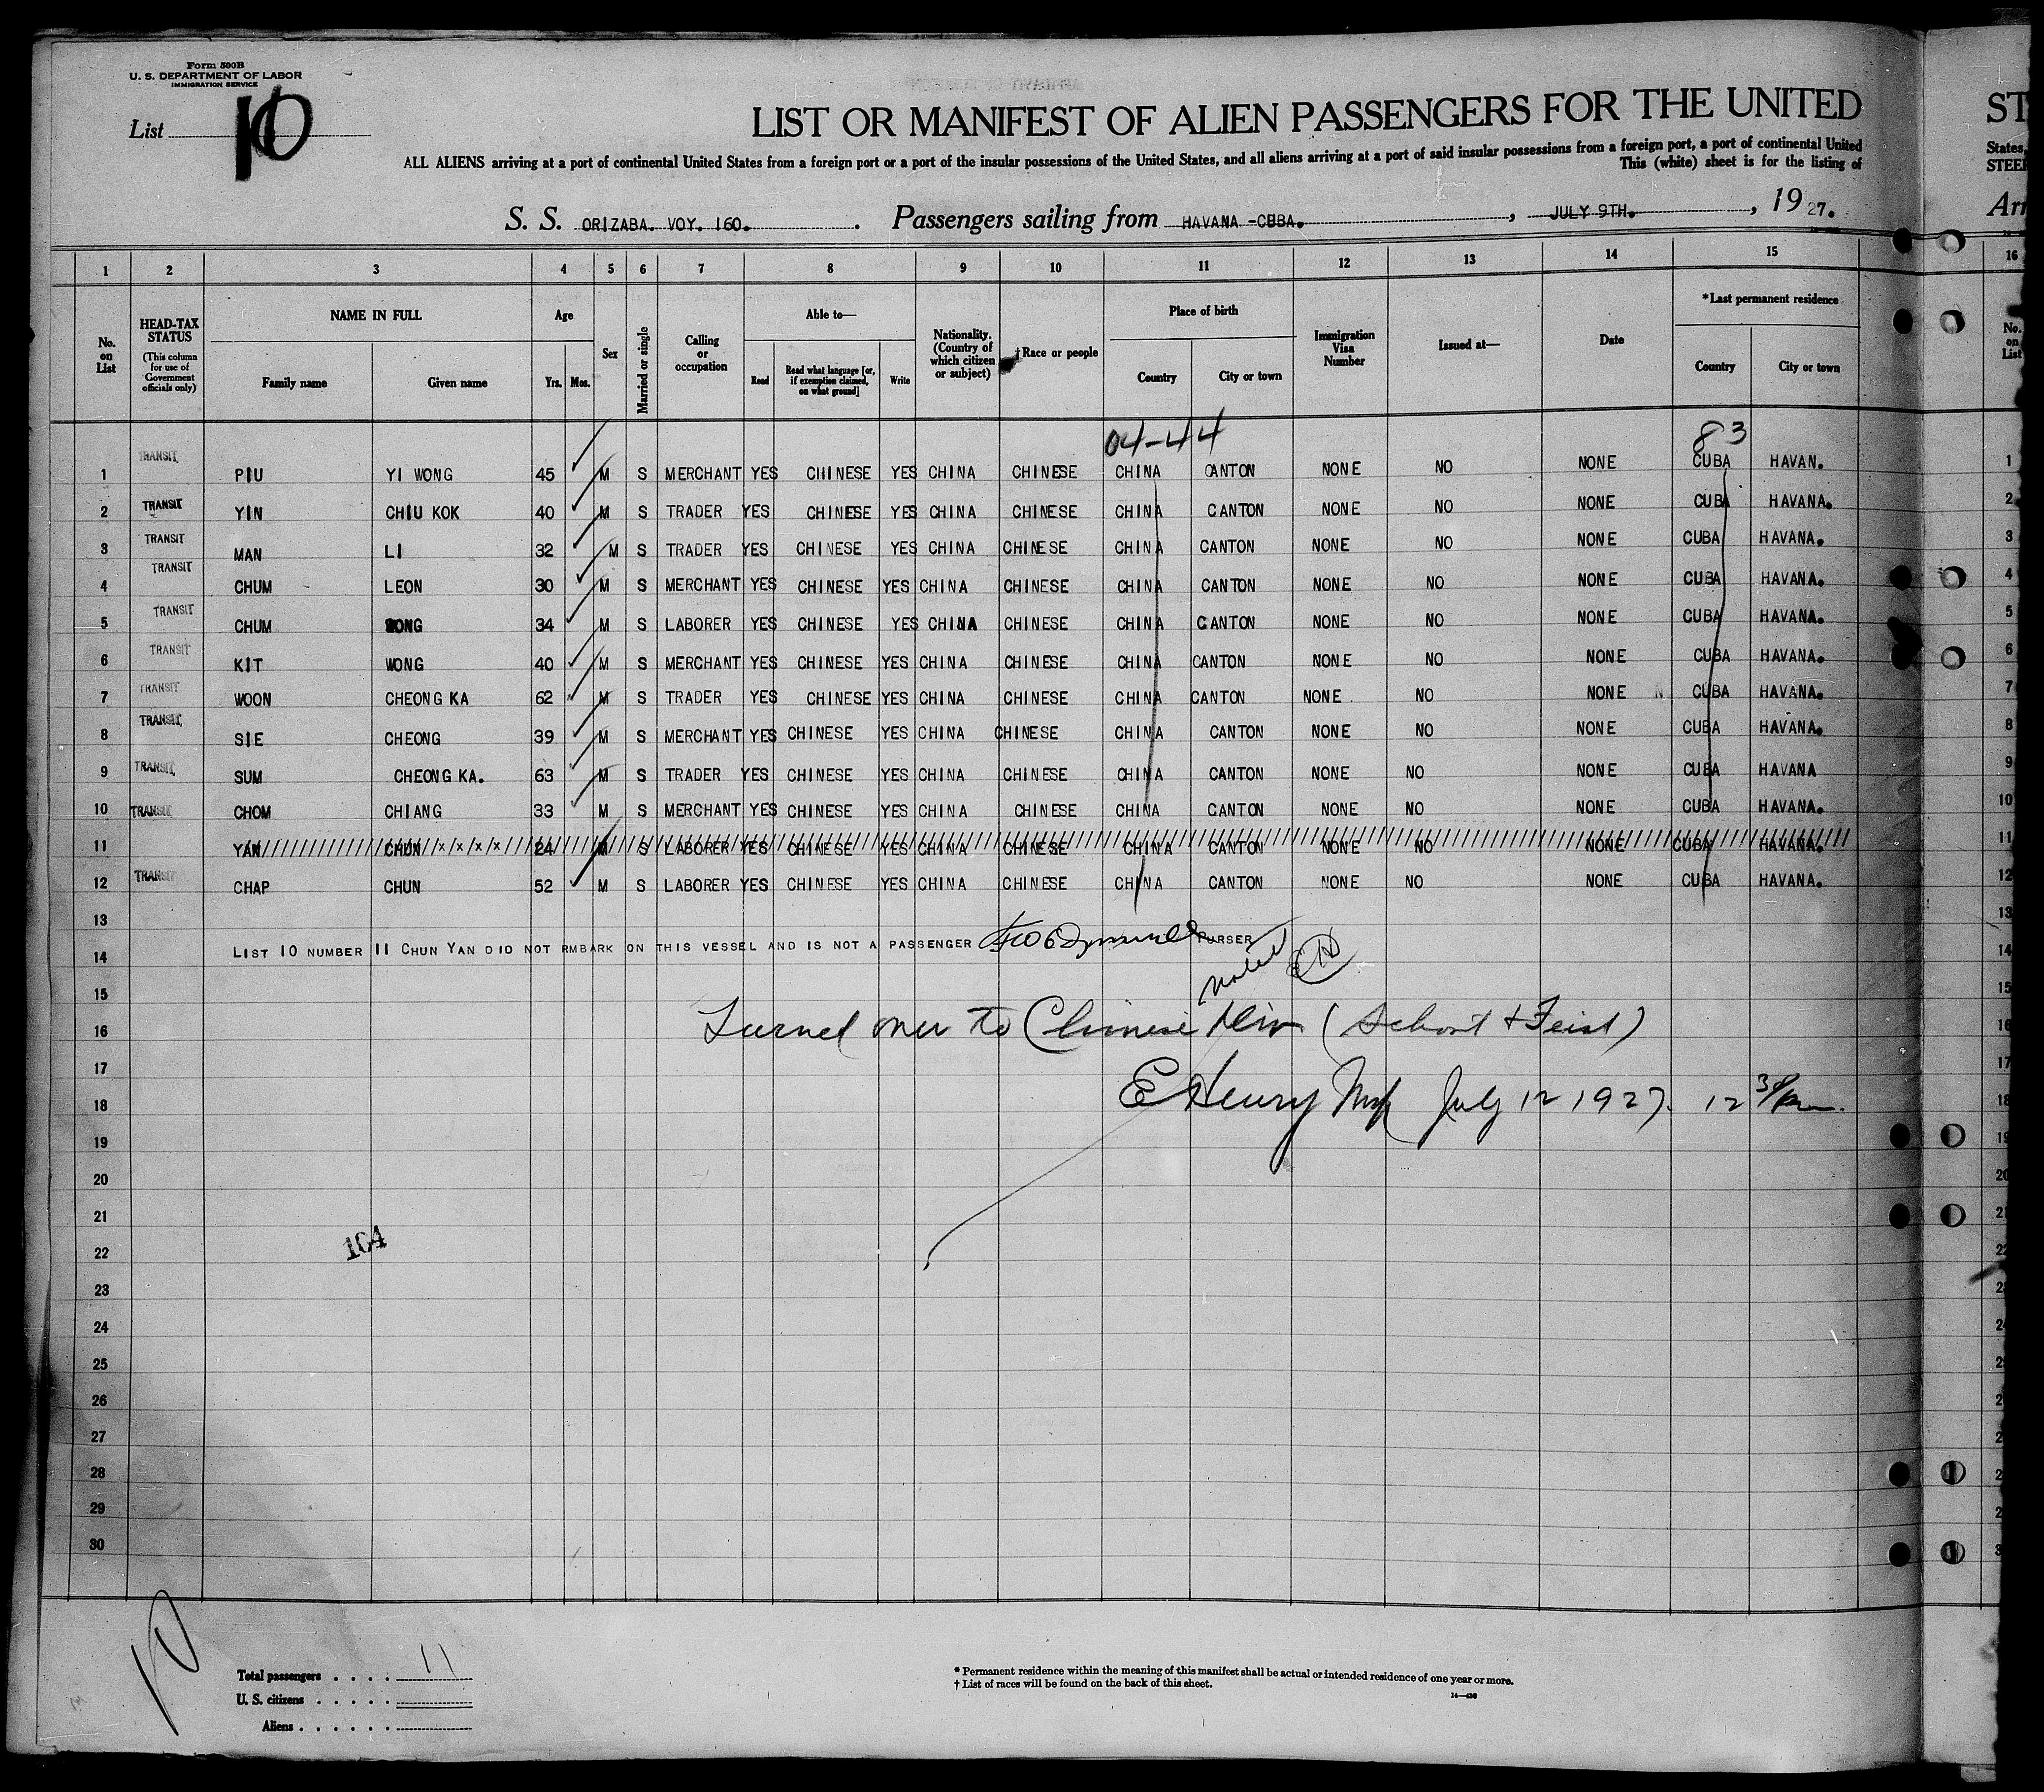 Form 500B
U. S. DEPARTMENT OF LABOR
IMMIGRATION SERVICE
List 10
LIST OR MANIFEST OF ALIEN PASSENGERS FOR THE UNITED
ALL ALIENS arriving at a port of continental United States from a foreign port or a port of the insular possessions of the United States, and all aliens arriving at a port of said insular possessions from a foreign port, a port of continental United
This (white) sheet is for the listing of
S. S. ORIZABA. VOY. 160. Passengers sailing from HAVANA -CUBA. , JULY 9TH. , 19 27.
ST
States,
STEER
Arr
1 2 3 4 5 6 7 8 9 10 11 12 13 14 15 16
No. on List
HEAD-TAX STATUS
(This column for use of Government officials only)
NAME IN FULL
Family name Given name
Age
Yrs. Mos.
Sex
Married or single
Calling or occupation
Able to—
Read
Read what language [or, if exemption claimed, on what ground]
Write
Nationality. (Country of which citizen or subject)
†Race or people
Place of birth
Country City or town
Immigration Visa Number
Issued at—
Date
*Last permanent residence
Country City or town
No. on List
04-44 83
1 TRANSIT PIU YI WONG 45 M S MERCHANT YES CHINESE YES CHINA CHINESE CHINA CANTON NONE NO NONE CUBA HAVAN. 1
2 TRANSIT YIN CHIU KOK 40 M S TRADER YES CHINESE YES CHINA CHINESE CHINA CANTON NONE NO NONE CUBA HAVANA. 2
3 TRANSIT MAN LI 32 M S TRADER YES CHINESE YES CHINA CHINESE CHINA CANTON NONE NO NONE CUBA HAVANA. 3
4 TRANSIT CHUM LEON 30 M S MERCHANT YES CHINESE YES CHINA CHINESE CHINA CANTON NONE NO NONE CUBA HAVANA. 4
5 TRANSIT CHUM WONG 34 M S LABORER YES CHINESE YES CHINA CHINESE CHINA CANTON NONE NO NONE CUBA HAVANA. 5
6 TRANSIT KIT WONG 40 M S MERCHANT YES CHINESE YES CHINA CHINESE CHINA CANTON NONE NO NONE CUBA HAVANA. 6
7 TRANSIT WOON CHEONG KA 62 M S TRADER YES CHINESE YES CHINA CHINESE CHINA CANTON NONE NO NONE CUBA HAVANA. 7
8 TRANSIT SIE CHEONG 39 M S MERCHANT YES CHINESE YES CHINA CHINESE CHINA CANTON NONE NO NONE CUBA HAVANA. 8
9 TRANSIT SUM CHEONG KA. 63 M S TRADER YES CHINESE YES CHINA CHINESE CHINA CANTON NONE NO NONE CUBA HAVANA 9
10 TRANSIT CHOM CHIANG 33 M S MERCHANT YES CHINESE YES CHINA CHINESE CHINA CANTON NONE NO NONE CUBA HAVANA. 10
11 YAN CHUN 24 M S LABORER YES CHINESE YES CHINA CHINESE CHINA CANTON NONE NO NONE CUBA HAVANA. 11
12 TRANSIT CHAP CHUN 52 M S LABORER YES CHINESE YES CHINA CHINESE CHINA CANTON NONE NO NONE CUBA HAVANA. 12
13 13
14 LIST 10 NUMBER 11 CHUN YAN DID NOT RMBARK ON THIS VESSEL AND IS NOT A PASSENGER PURSER 14
Noted
15 15
16 Turned over to Chinese Div (Schout + Feist) 16
17 17
18 E Henry July 12 1927. 12 30 pm. 18
19 19
20 20
21 21
104
22 22
23
24
25
26
27
28
29
30
10
Total passengers . . . . 11
U. S. citizens . . . . .
Aliens . . . . . .
* Permanent residence within the meaning of this manifest shall be actual or intended residence of one year or more.
† List of races will be found on the back of this sheet.
14—430